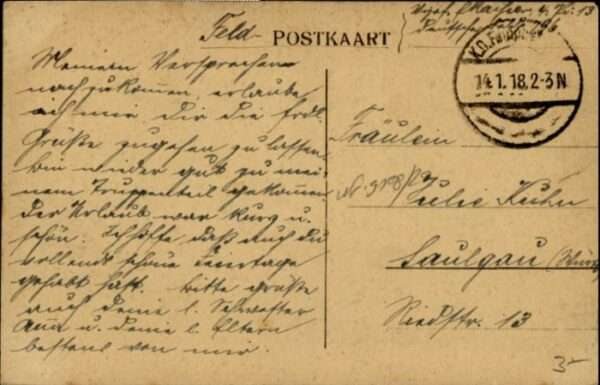 Feld- POSTKAART
Deutsche
14.1.18.2-3N
Meinem Versprechen
nachzukommen, erlaube
ich mir Dir die frdl.
Grüße zugehen zu lassen,
bin wieder gut zu mei-
nem Truppenteil gekommen.
Der Urlaub war kurz u.
schön. Ich hoffe daß auch du
vollends schöne Feiertage
gehabt hast. Bitte grüße
auch deine l. Schwester
Anna u. deine l. Eltern
bestens von mir.
Fräulein
Julie Kuhn
Saulgau
Riedstr. 13
3-